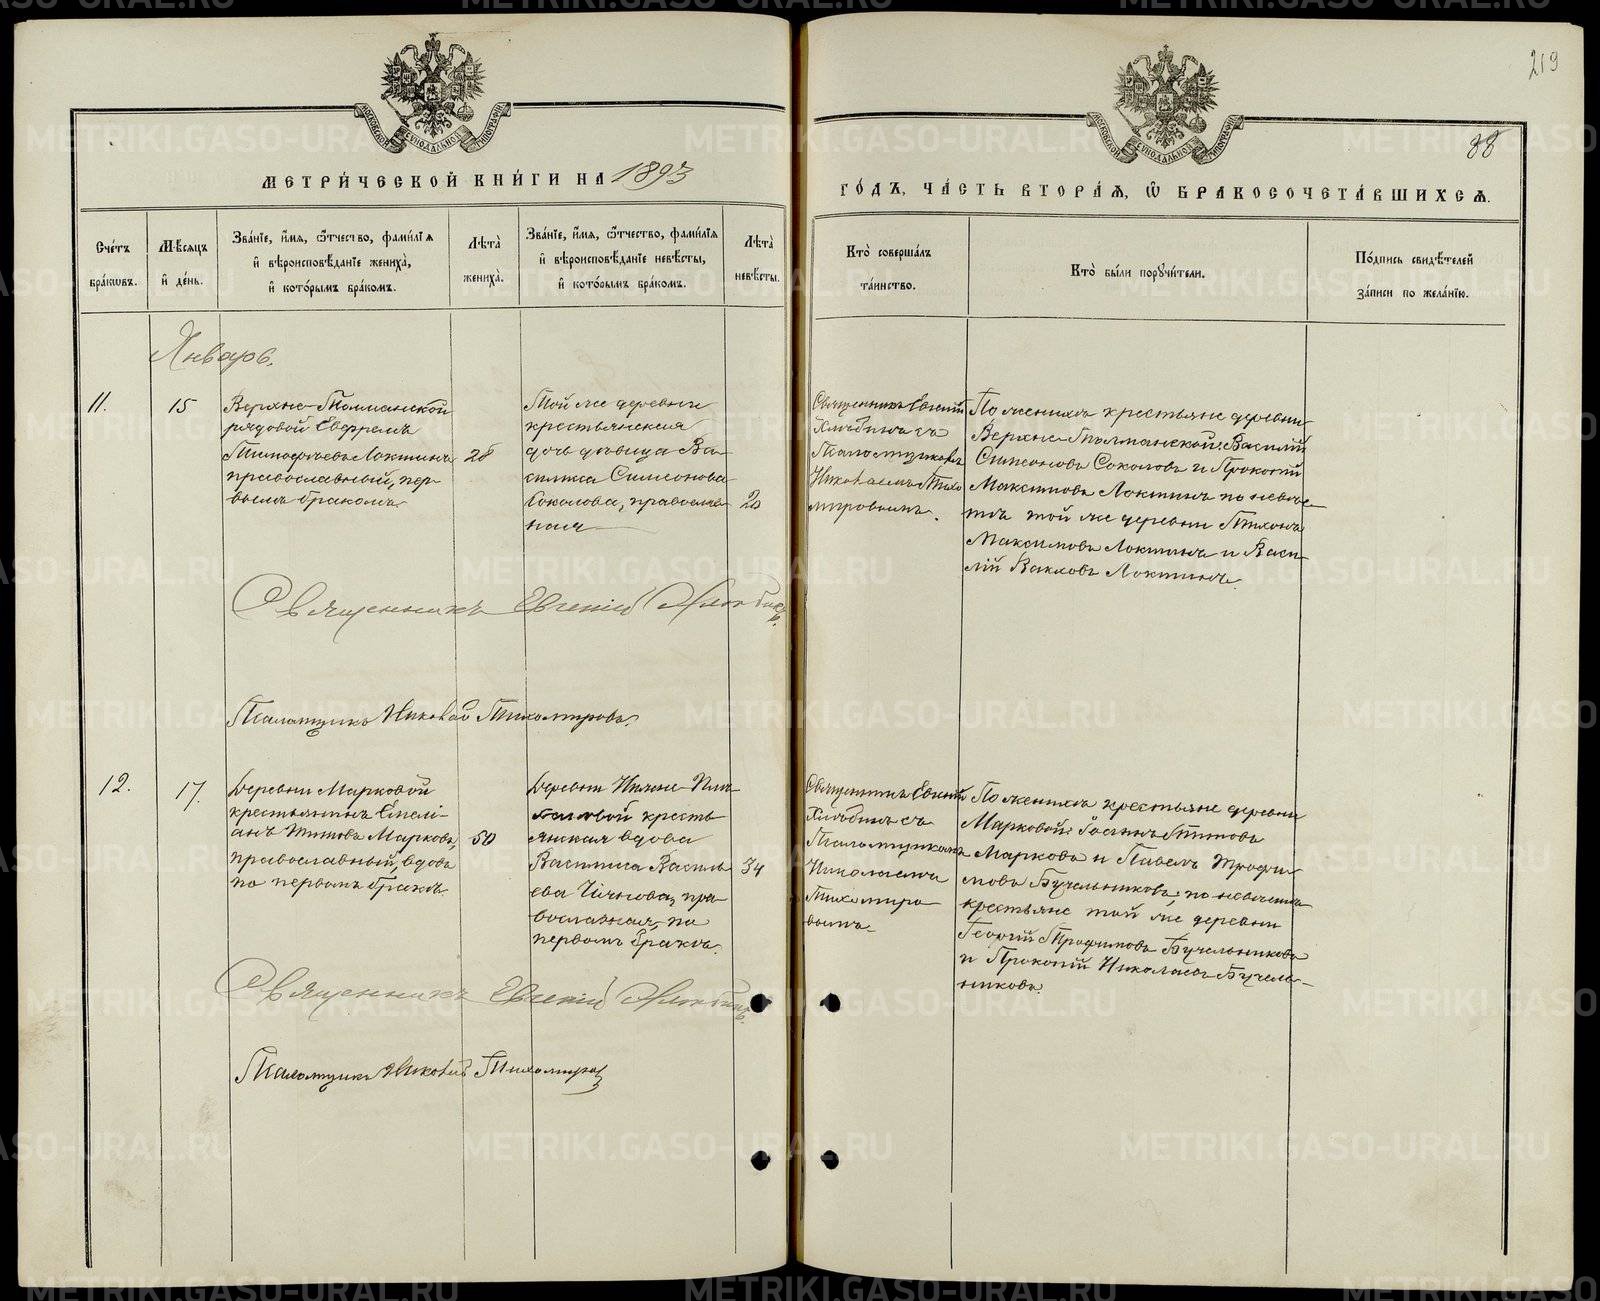 219
88
МОСКОВСКОЙ СѴНОДАЛЬНОЙ ТИПОГРАФІИ
МОСКОВСКОЙ СѴНОДАЛЬНОЙ ТИПОГРАФІИ
МЕТРИ́ЧЕСКОЙ КНИ́ГИ НА 1893
ГО́ДЪ, ЧА́СТЬ ВТОРА́Я, Ѿ БРАКОСОЧЕТА́ВШИХСЯ.
Сче́тъ бра́кѡвъ.
Мѣ́сяцъ и҆ де́нь.
Зва́нїе, и҆́мя, ѻ҆́тчество, фами́лїя и҆ вѣроисповѣ́данїе жениха̀, и҆ кото́рымъ бра́комъ.
Лѣта̀ жениха̀.
Зва́нїе, и҆́мя, ѻ҆́тчество, фами́лїя и҆ вѣроисповѣ́данїе невѣ́сты, и҆ кото́рымъ бра́комъ.
Лѣта̀ невѣ́сты.
Кто̀ соверша́лъ та́инство.
Кто̀ бы́ли порꙋчи́тели.
По́дпись свидѣ́телей за́писи по жела́нїю.
Январь.
11.
15
Верхне-Толманской
рядовой Евфремъ
Тимофѣевъ Локтинъ
православный, пер-
вымъ бракомъ.
26
Той же деревни
крестьянская
дочь дѣвица Ва-
силиса Симеонова
Соколова, православ-
ная
20
Священникъ Евгеній
Хлѣбинъ съ
Псаломщикомъ
Николаемъ Тихо
мировымъ.
По женихѣ крестьяне деревни
Верхне-Толманской: Василій
Симеоновъ Соколовъ и Прокопій
Максимовъ Локтинъ по невѣс-
тѣ той же деревни Тихонъ
Максимовъ Локтинъ и Васи-
лій Локтинъ.
Священникъ Евгеній Хлѣбинъ.
Псаломщикъ Николай Тихомировъ.
12.
17.
Деревни Марковой
крестьянинъ Емелі-
анъ Титовъ Марковъ,
православный, вдовъ
по первомъ бракѣ.
50
Деревни Нижне-
кресть
янская вдова
Василиса Василь
ева пра
вославная, по
первомъ бракѣ.
34
Священникъ Евгеній
Хлѣбинъ съ
Псаломщикомъ
Николаемъ
Тихомиро
вымъ.
По женихѣ крестьяне деревни
Марковой: Титовъ
Марковъ и Павелъ Трофи-
мовъ Бучельниковъ; по невѣстѣ
крестьяне той же деревни
Георгій Трофимовъ Бучельниковъ
и Прокопій Николаевъ Бучель-
никовъ.
Священникъ Евгеній Хлѣбинъ.
Псаломщикъ Николай Тихомировъ
METRIKI.GASO-URAL.RU